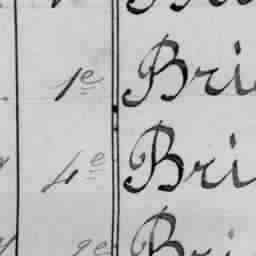 1e Bri
4e Bri
2e Bri